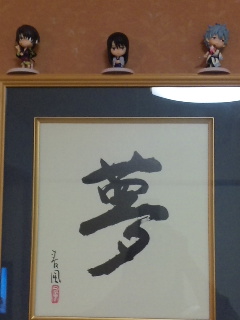 夢
春風